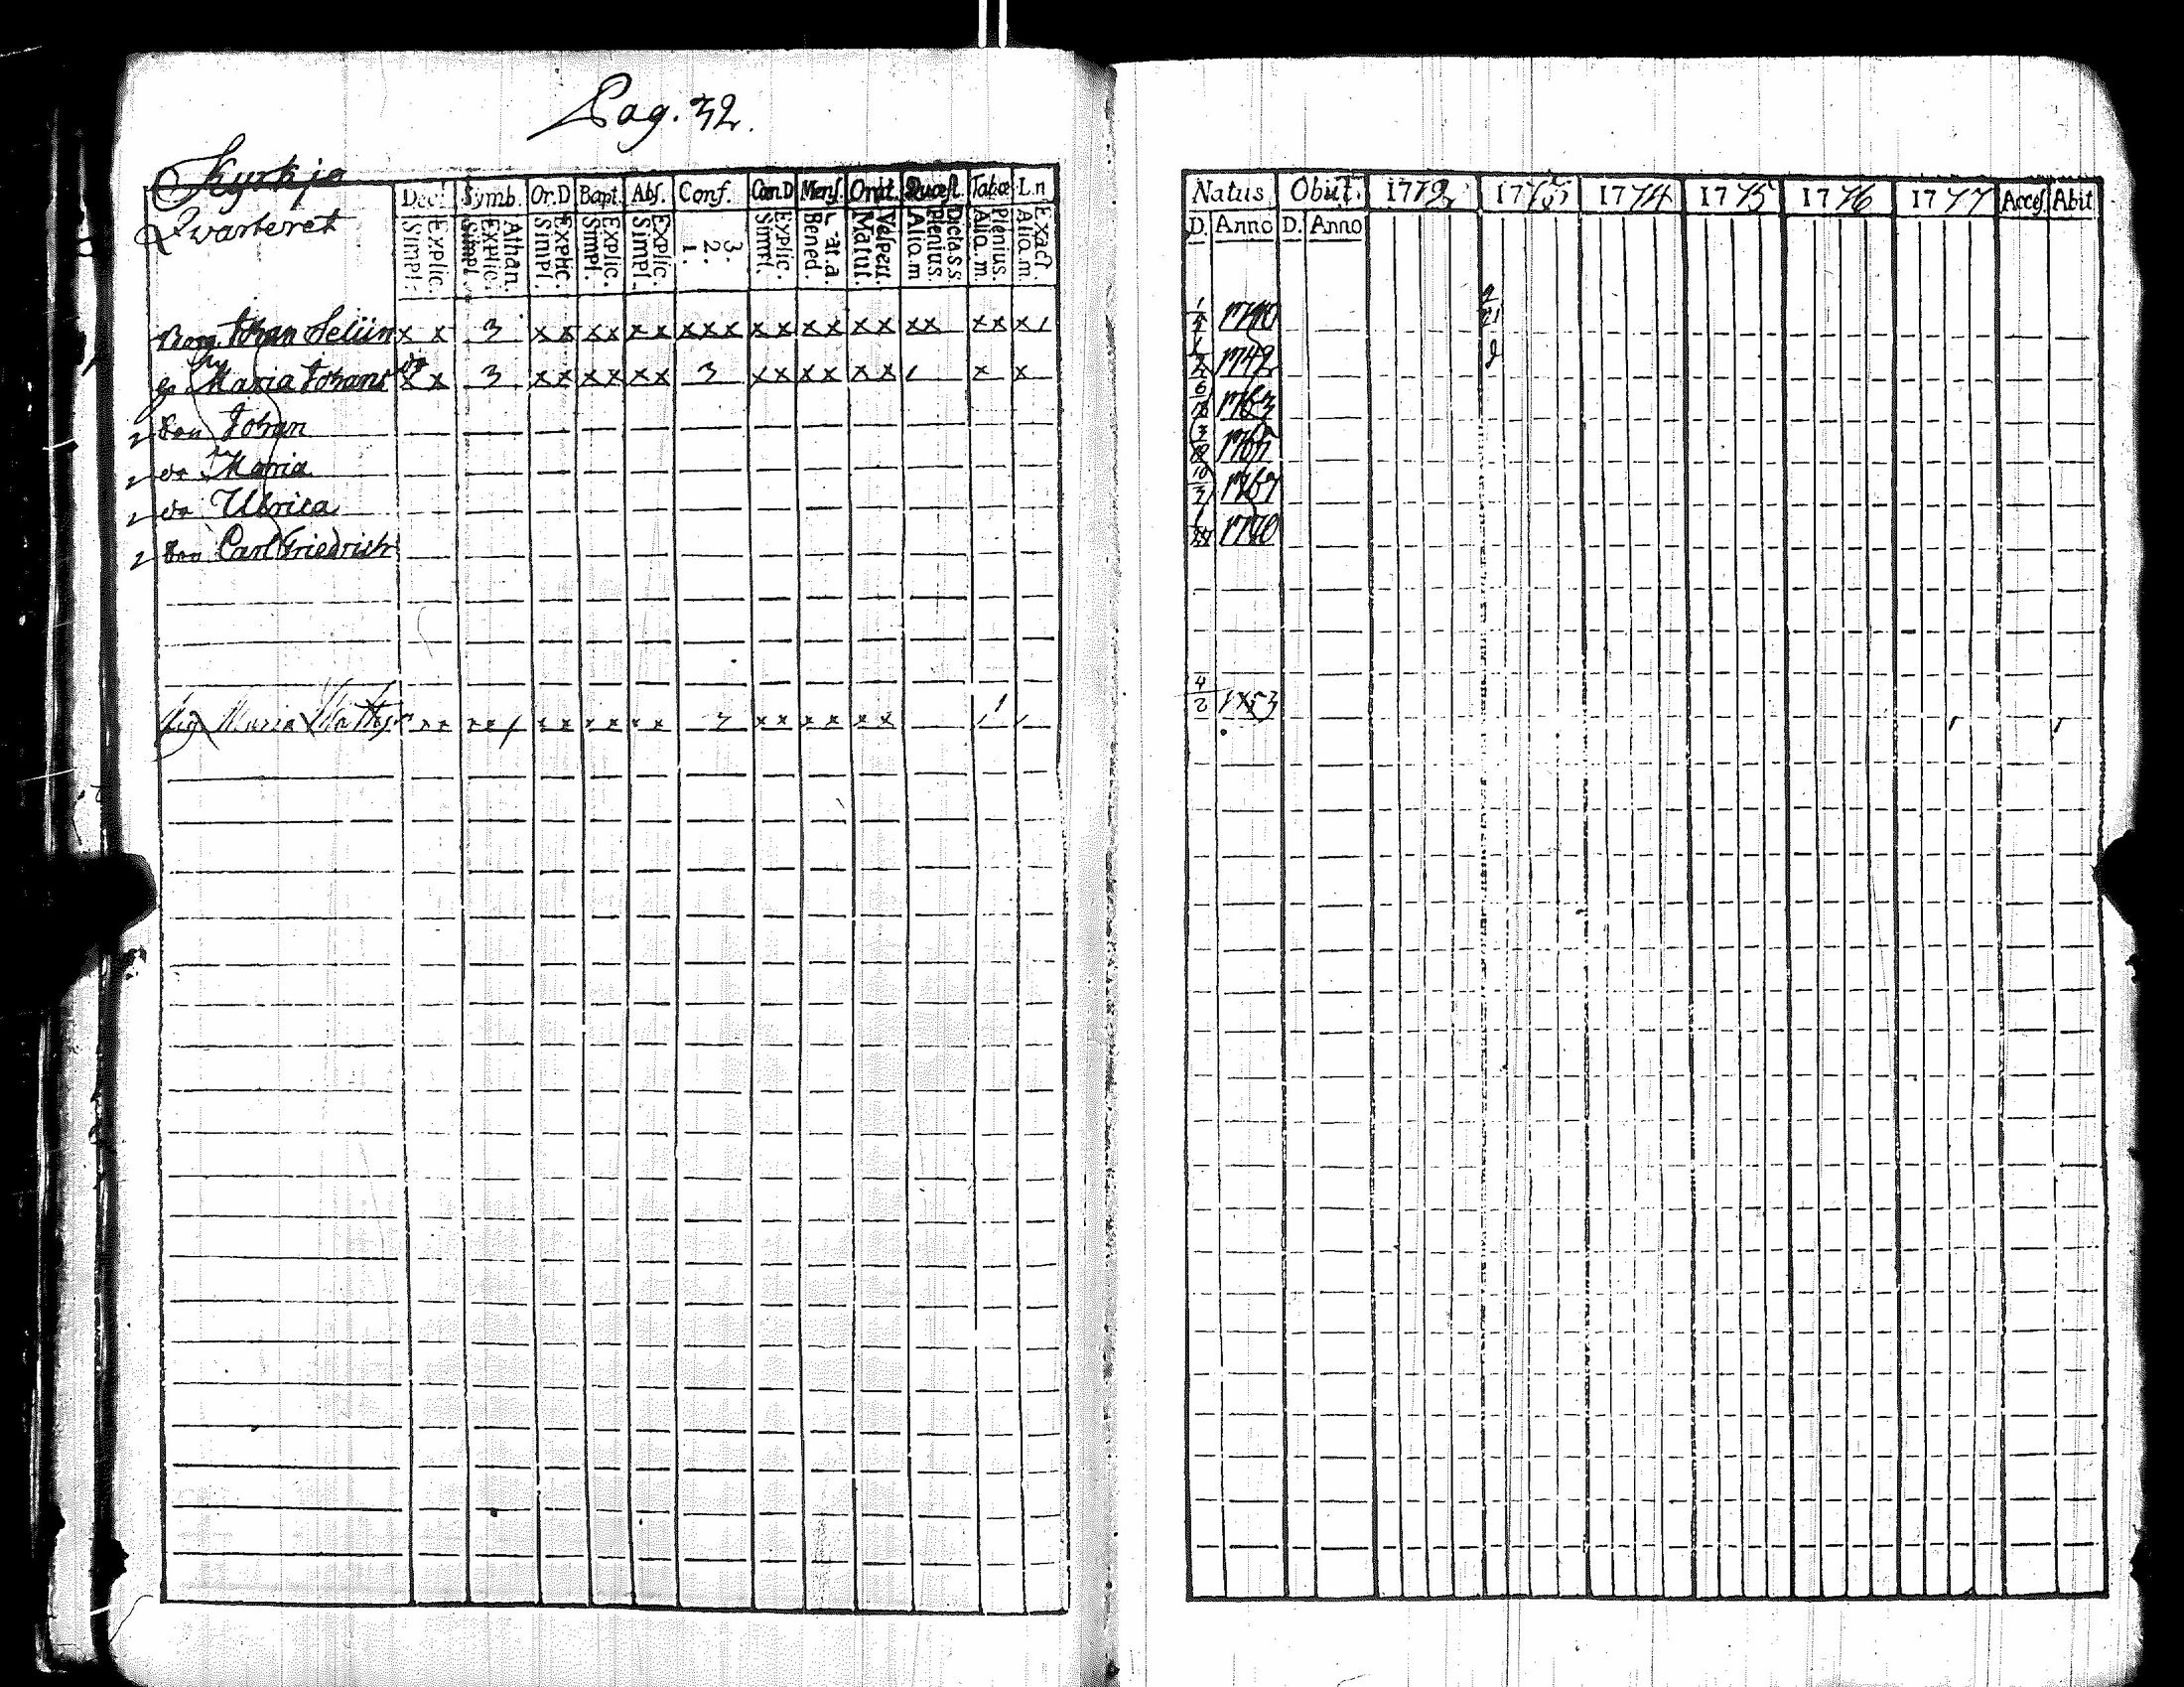 Pag. 32.
Kyrkjo
Qvarteret
Decl. Symb. Or.D Bapt. Abs. Conf. Con.D Mens. Orat. Quæst. Tabæ L.n
Simpl. Explic. Simpl. Explic. Athan. Simpl. Explic. Simpl. Explic. Simpl. Explic. 1. 2. 3. Simpl. Explic. Bened. Matut. Vespert. Alio.m Plenius. Dicta.s.s. Alio.m. Plenius. Alio.m. Exact.
Johan Selün x x 3 x x x x x x x x x x x x x x x x x x x x
Maria Johans x x 3 x x x x x x 3 x x x x x x x x
2 Son Johan
2 Dr Maria
2 Dr Ulrica
2 Son Carl Friedrich
Maria x x x x x x x x x x x x x x x x
Natus Obiit. 1772 1773 1774 1775 1776 1777 Acces. Abit
D. Anno D. Anno
1740
1742
1763
1765
1767
1770
4/2 1753